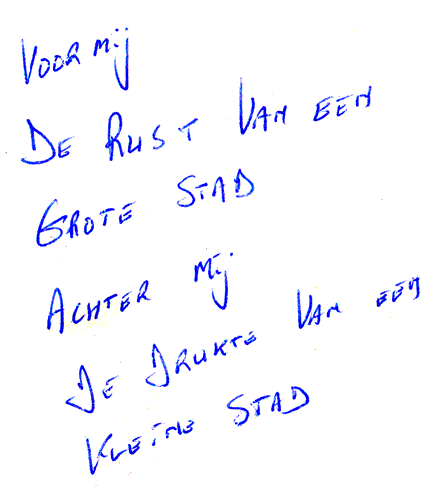 VOOR Mij
DE RUST VAN EEN
GROTE STAD
ACHTER Mij
DE DRUKTE VAN EEN
KLEINE STAD